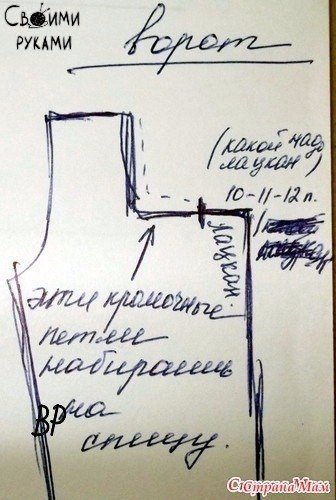 Своими
руками
ворот
(какой надо
лацкан)
10-11-12 п.
лацкан
эти кромочные
петли
набираешь
ВР на
спицу.
СтранаМам